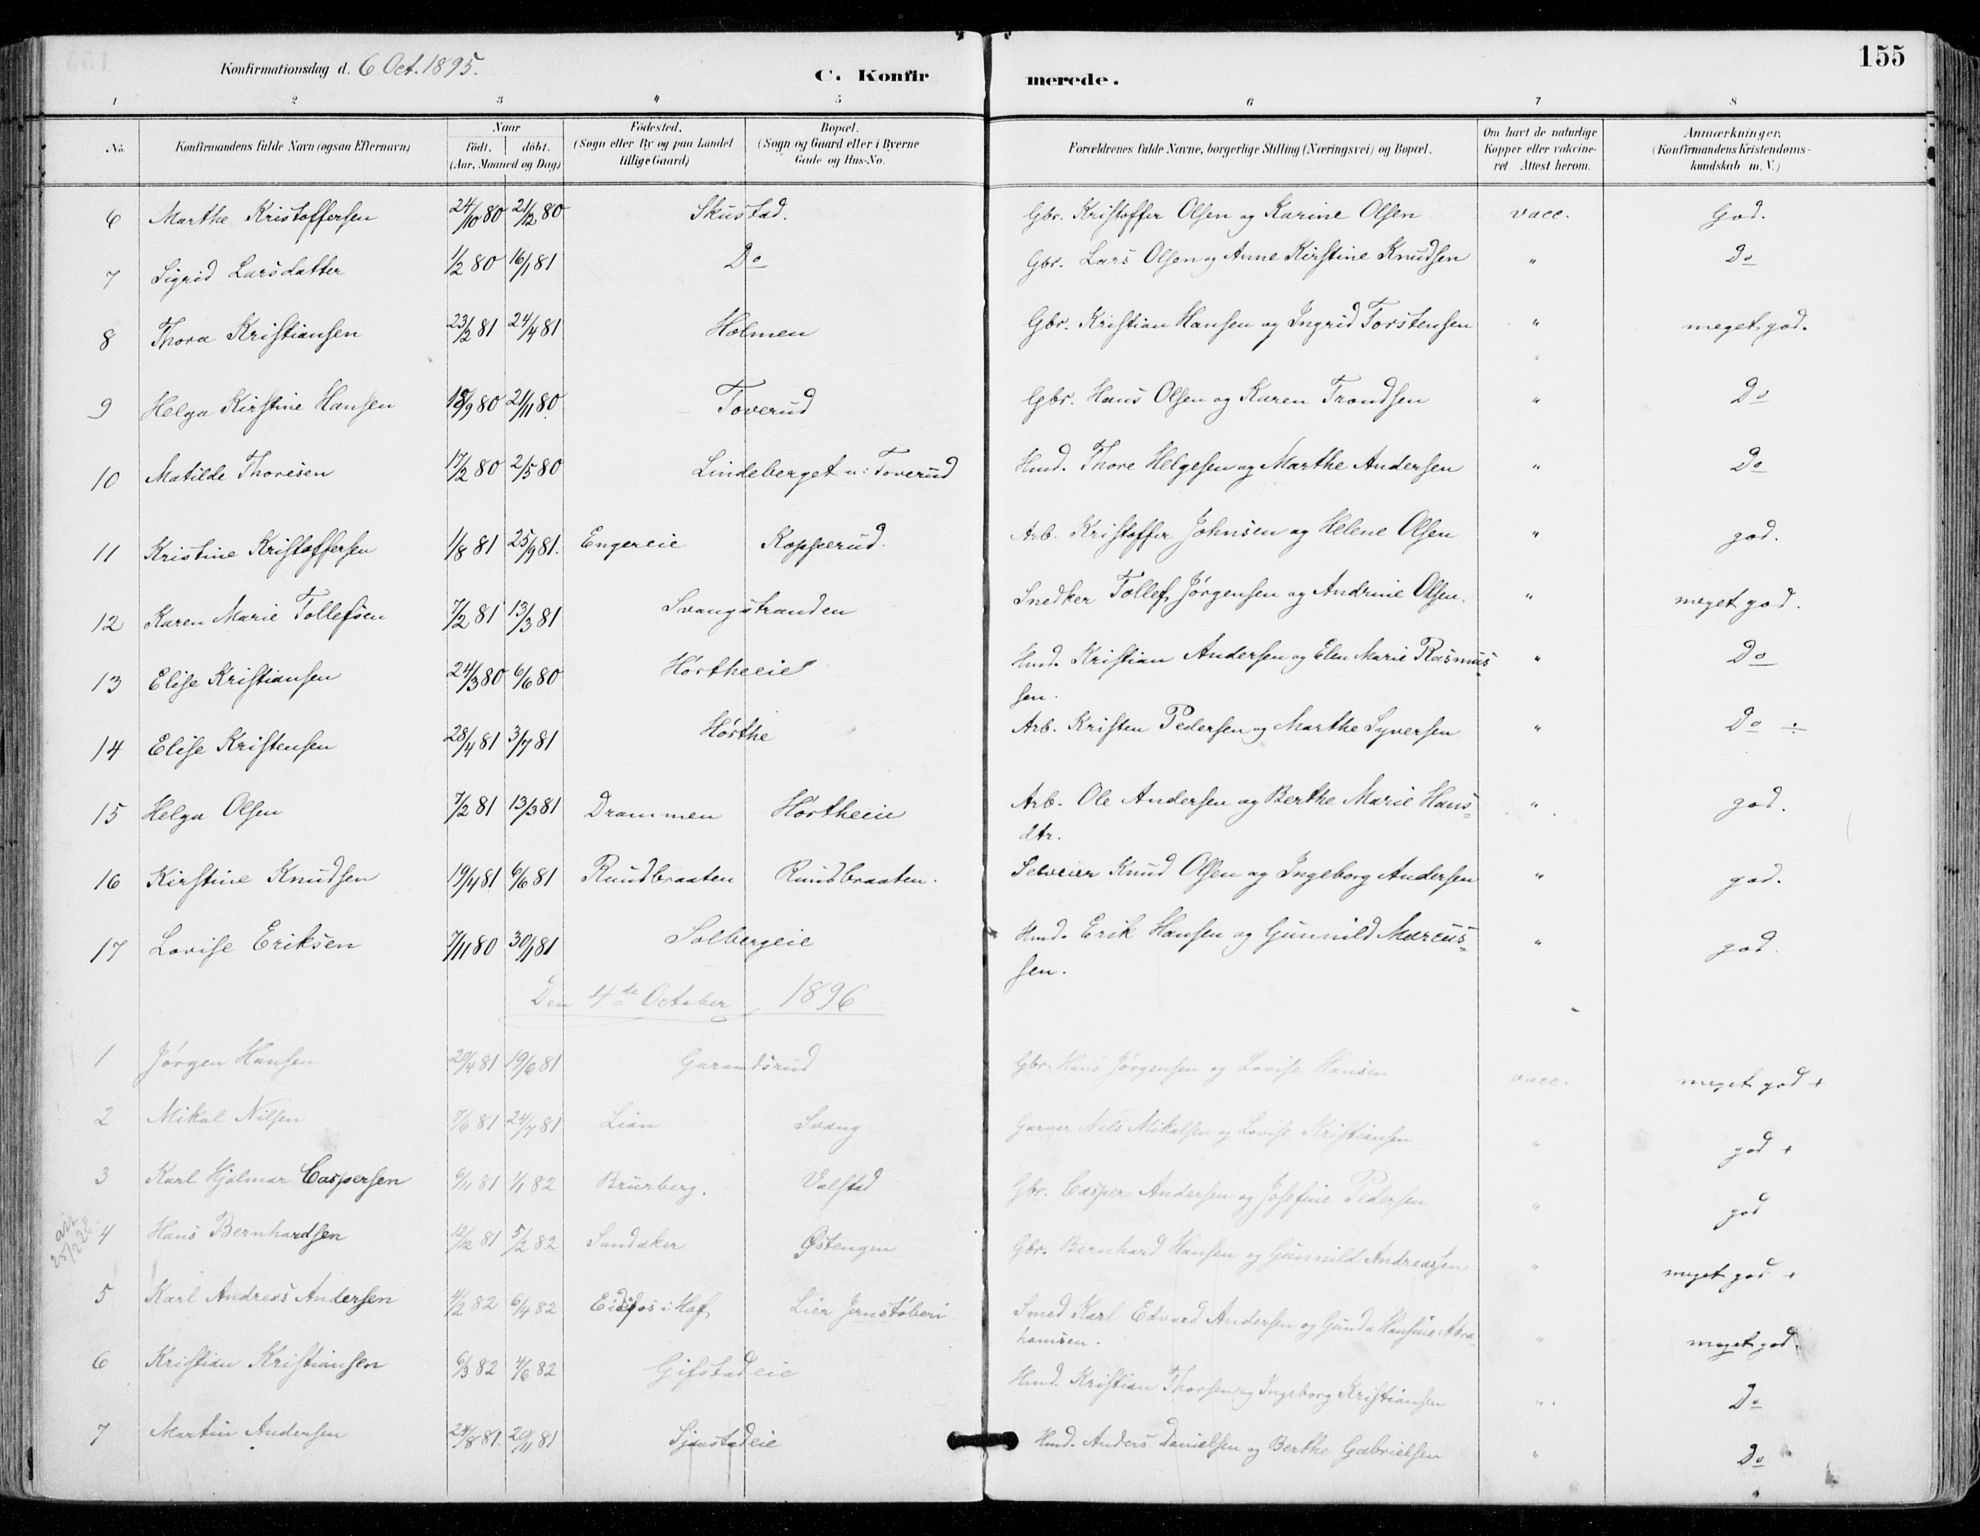 155
Konfirmationsdag d. 6 Oct. 1895.
C. Konfir merede.
1 2 3 4 5 6 7 8
No. Konfirmandens fulde Navn (ogsaa Efternavn) Naar født. døbt. (Aar, Maaned og Dag) Fødested. (Sogn eller By og paa Landet tillige Gaard) Bopæl. (Sogn og Gaard eller i Byerne Gade og Hus-No. Forældrenes fulde Navne, borgerlige Stilling (Næringsvei) og Bopæl. Om havt de naturlige Kopper eller vakcineret. Attest herom. Anmærkninger. (Konfirmandens Kristendomskundskab m. V.)
6 Marthe Kristoffersen 24/10 80 21/12 80 Skustad. Gbr. Kristoffer Olsen og Karine Olsen vacc. God.
7 Sigrid Larsdatter 1/2 80 16/1 81 Do Gbr. Lars Olsen og Anne Kirstine Knudsen " Do
8 Thora Kristiansen 23/2 81 24/4 81 Holmen Gbr. Kristian Hansen og Ingrid Torstensen " meget god.
9 Helga Kirstine Hansen 18/9 80 21/11 80 Toverud Gbr. Hans Olsen og Karen Trondsen " Do
10 Matilde Thoresen 17/2 80 2/5 80 Lindeberget u: Toverud Hmd. Thore Helgesen og Marthe Andersen " Do
11 Kristine Kristoffersen 1/8 81 25/9 81. Engereie Kopperud. Arb. Kristoffer Johnsen og Helene Olsen " god.
12 Karen Marie Tollefsen 7/2 81 13/3 81 Svangstranden Snedker Tollef Jørgensen og Andrine Olsen. " meget god.
13 Elise Kristiansen 24/3 80 6/6 80 Hørtheeie Hmd. Kristian Andersen og Elen Marie Rasmus
sen. " Do
14 Elise Kristensen 28/4 81 3/7 81 Hørthe Arb. Kristen Pedersen og Marthe Syversen " Do ÷
15 Helga Olsen 7/2 81 13/3 81 Drammen Hørtheeie Arb. Ole Andersen og Berthe Marie Hans=
dtr. " god.
16 Kirstine Knudsen 19/4 81 6/6 81 Rundbraaten Rundbraaten. Selveier Knud Olsen og Ingeborg Andersen " god.
17 Lovise Eriksen 7/11 80 30/1 81 Solbergeie Hmd. Erik Hansen og Gunnild Marcus=
sen. " god.
Den 4de October 1896
1 Jørgen Hansen 20/4 81 19/6 81 Garandsrud Gbr. Hans Jørgensen og Lovise Hansen vacc. meget god +
2 Mikal Nilsen 7/6 81 24/7 81 Lian Svang Garver Nils Mikalsen og Lovise Kristiansen " god +
3 Karl Hjalmar Caspersen 6/11 81 1/1 82 Brurberg. Valstad Gbr. Casper Andersen og Josefine Pedersen " god
4 Hans Bernhardsen 12/12 81 5/2 82 Sandaker Østengen Gbr. Bernhard Hansen og Gunnild Andreassen " meget god +
5 Karl Andreas Andersen 4/2 82 6/4 82 Eidsfos i Hof Lier Jernstøberi Smed Karl Edvard Andersen og Gunda Hansine Abra
hamsen. " meget god.
6 Kristian Kristiansen 6/3 82 4/6 82 Gifstadeie Hmd. Kristian Thorsen og Ingeborg Kristiansen " Do
7 Martin Andersen 24/8 81. 20/11 81 Sjaastadeie Hmd. Anders Danielsen og Berthe Gabrielsen " Do